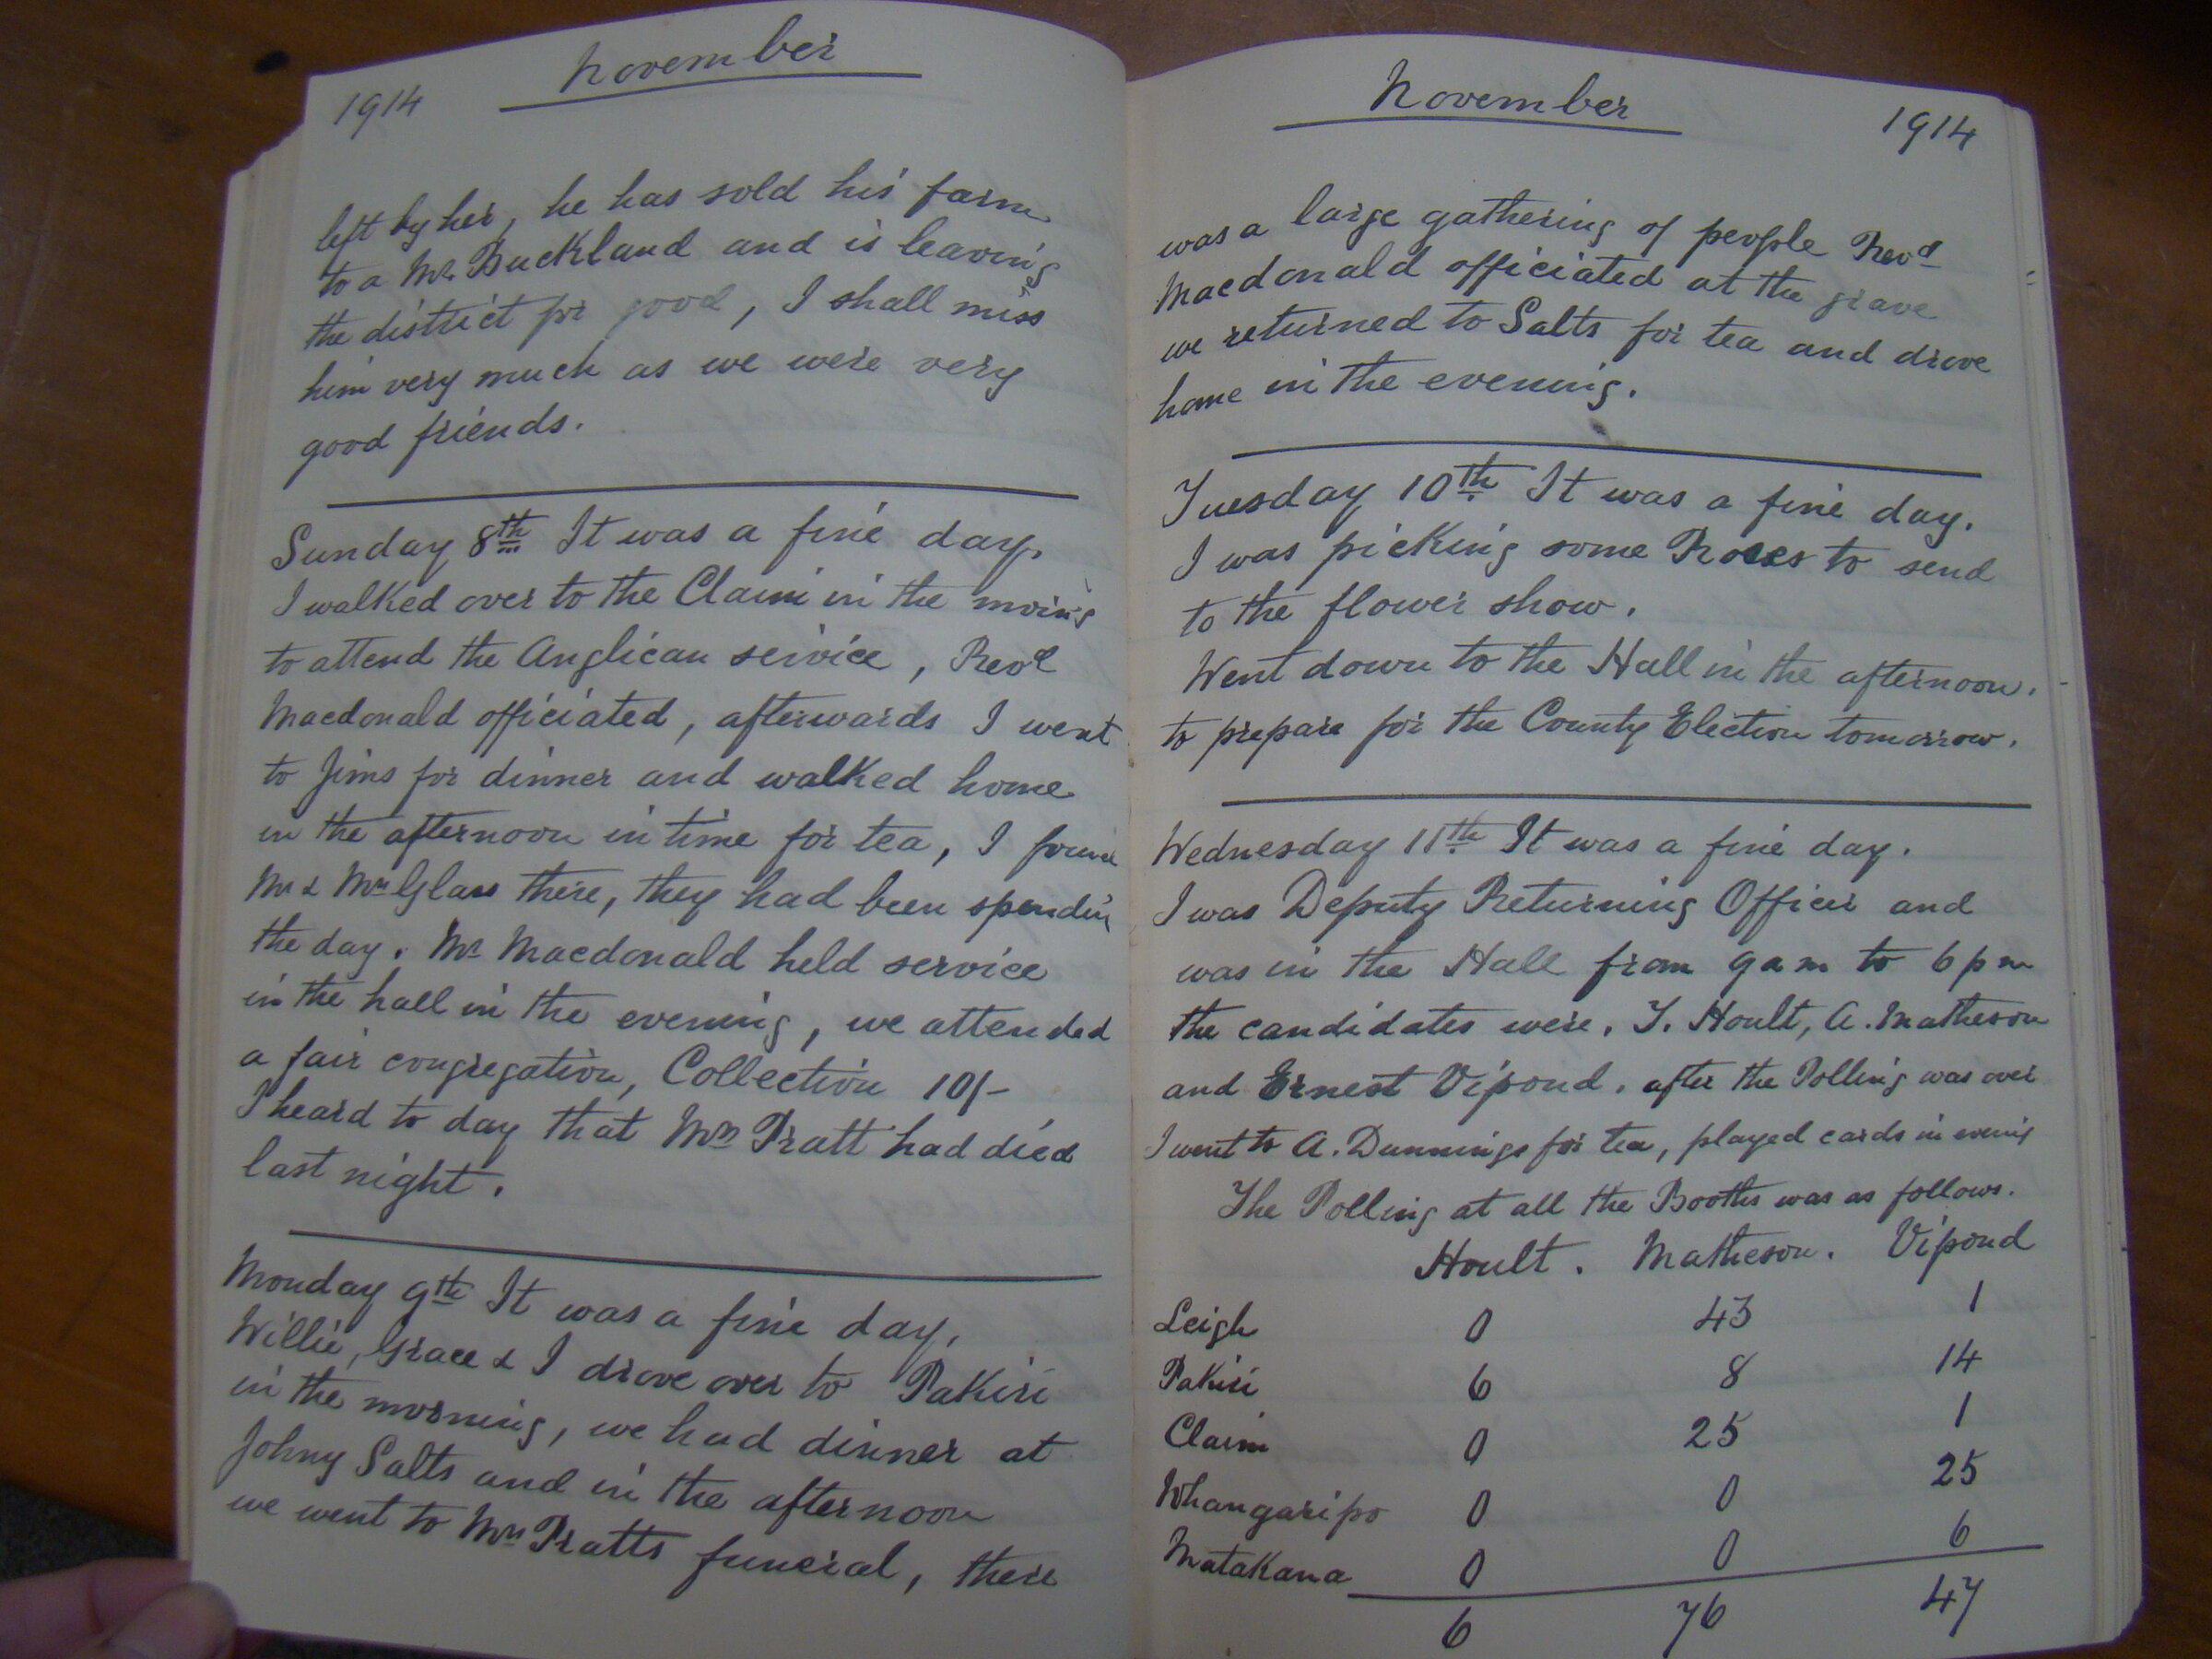 November
1914
left by her, he has sold his farm
to a Mr Buckland and is leaving
the district for good, I shall miss
him very much as we were very
good friends.
Sunday 8th It was a fine day.
I walked over to the Claim in the morng
to attend the Anglican service, Revd
Macdonald officiated, afterwards I went
to Jims for dinner and walked home
in the afternoon in time for tea, I found
Mr & Mrs Glass there, they had been spending
the day. Mr Macdonald held service
in the hall in the evening, we attended
a fair congregation, Collection 10/-
I heard to day that Mrs Pratt had died
last night.
Monday 9th It was a fine day.
Willie, Grace & I drove over to Pakiri
in the morning, we had dinner at
Johny Salts and in the afternoon
we went to Mrs Pratts funeral, there
November
1914
was a large gathering of people Revd
Macdonald officiated at the grave
we returned to Salts for tea and drove
home in the evening.
Tuesday 10th It was a fine day.
I was picking some Roses to send
to the flower show.
Went down to the Hall in the afternoon.
to prepare for the County Election tomorrow.
Wednesday 11th It was a fine day.
I was Deputy Returning Officer and
was in the Hall from 9 am to 6 pm
the candidates were. T. Hoult, A. Matheson
and Ernest Vipond. after the Polling was over
I went to A. Dunnings for tea, played cards in evenig
The Polling at all the Booths was as follows.
Hoult. Matheson. Vipond
Leigh 0 43 1
Pakiri 6 8 14
Claim 0 25 1
Whangaripo 0 0 25
Matakana 0 0 6
6 76 47